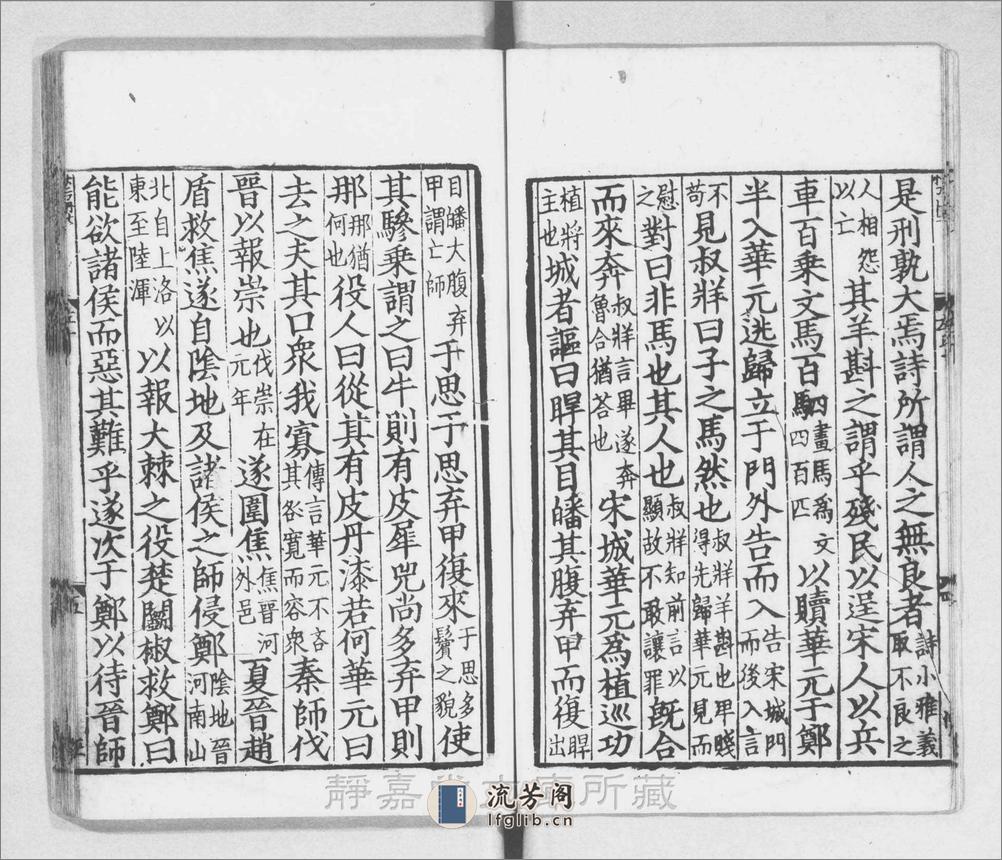 是刑孰大焉詩所謂人之無良者詩小雅義取不良之
人相怨以亡其羊斟之謂乎殘民以逞宋人以兵
車百乗文馬百駟畫馬爲文四百匹以贖華元于鄭
半入華元逃歸立于門外告而入告宋城門而後入言
不苟見叔牂曰子之馬然也叔牂羊斟也卑賤得先歸華元見而
慰之對曰非馬也其人也叔牂知前言以顯故不敢讓罪旣合
而來奔叔牂言畢遂奔魯合猶荅也宋城華元爲植巡功
植將主也城者謳曰睅其目皤其腹弃甲而復睅出
目皤大腹弃甲謂亡師于思于思弃甲復來于思多鬢之貌使
其驂乗謂之曰牛則有皮犀兕尚多弃甲則
那那猶何也役人曰從其有皮丹漆若何華元曰
去之夫其口衆我寡傳言華元不吝其咎寛而容衆秦師伐
晉以報崇也伐崇在元年遂圍焦焦晉河外邑夏晉趙
盾救焦遂自陰地及諸侯之師侵鄭陰地晉河南山
北自上洛以東至陸渾以報大棘之役楚鬭椒救鄭曰
能欲諸侯而惡其難乎遂次于鄭以待晉師
靜嘉堂文庫所藏
流芳阁
lfglib.cn